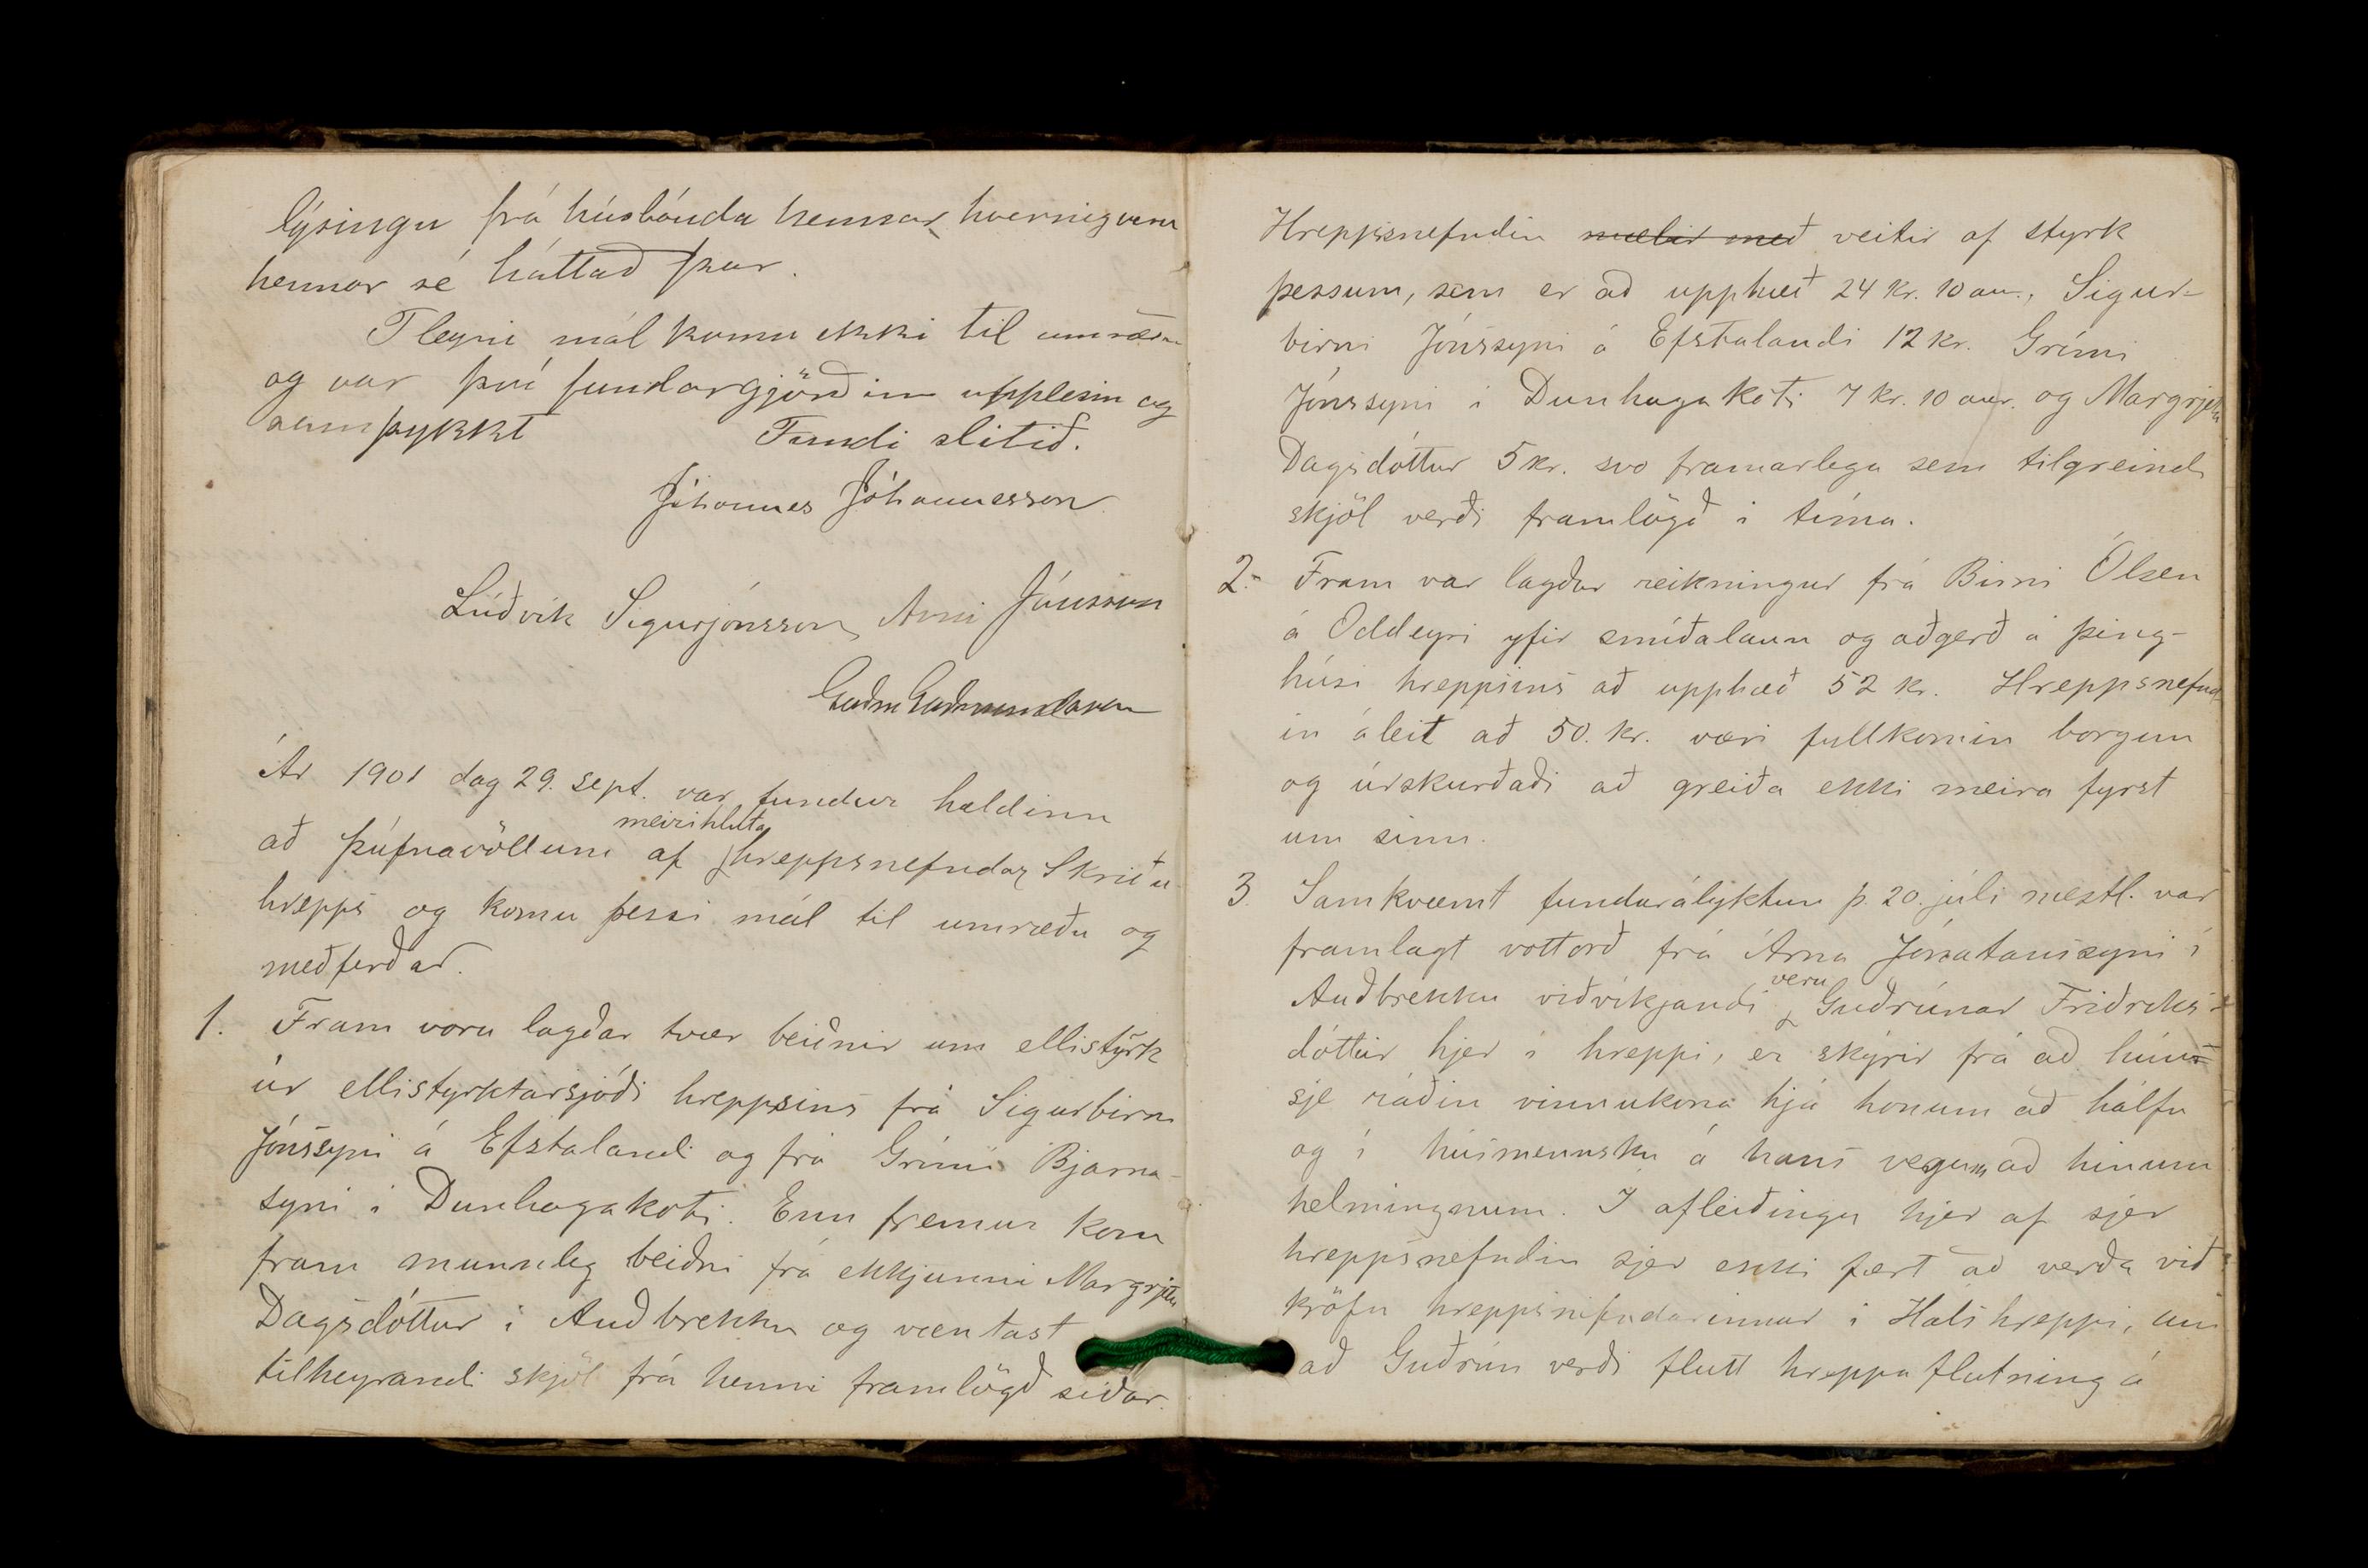 lýsingu frá húsbónda hennar hvernig veru
hennar sé háttað þar.
Fleyri mál komu ekki til umræðu
og var því fundargjörðin upplesin og
samþykkt Fundi slitið.
Jóhannes Jóhannesson
Lúðvík Sigurjónsson Árni Jónsson
Guðm Guðmundsson
Ár 1901 dag 29. sept. var fundur haldinn
meirihluta
að Þúfnavöllum af hreppsnefndar Skriðu
hrepps og komu þessi mál til umræðu og
meðferðar.
1. Fram voru lagðar tvær beiðnir um ellistyrk
úr ellistyrktarsjóði hreppsins frá Sigurbirni
Jónssyni á Efstalandi og frá Grími Bjarna-
syni í Dunhagakoti. Enn fremur kom
fram munnleg beiðni frá ekkjunni Margrjetu
Dagsdóttur í Auðbrekku og væntast
tilheyrandi skjöl frá henni framlögð síðar.
Hreppsnefndin mælir með veitir af styrk
þessum, sem er að upphæð 24 kr. 10 au., Sigur-
birni Jónssyni á Efstalandi 12 kr. Grími
Jónssyni í Dunhagakoti 7 kr. 10 aur. og Margrjetu
Dagsdóttur 5 kr. svo framarlega sem tilgreind
skjöl verði framlögð í tíma.
2. Fram var lagður reikningur frá Birni Ólsen
á Oddeyri yfir smíðalaun og aðgerð á þing-
húsi hreppsins að upphæð 52 kr. Hreppsnefnd
in áleit að 50. kr. væri fullkomin borgun
og úrskurðaði að greiða ekki meira fyrst
um sinn.
3. Samkvæmt fundarályktun þ. 20. júlí næstl. var
framlagt vottorð frá Árna Jónatanssyni í
veru
Auðbrekku viðvíkjandi Guðrúnar Friðriks-
dóttur hjer í hreppi, er skýrir frá að hún
sje ráðin vinnukona hjá honum að hálfu
og í húsmennsku á hans vegum að hinum
helmingnum. I afleiðingu hjer af sjer
hreppsnefndin sjer ekki fært að verða við
kröfu hreppsnefndarinnar í Hálshreppi, um
að Guðrún verði flutt hreppaflutning á